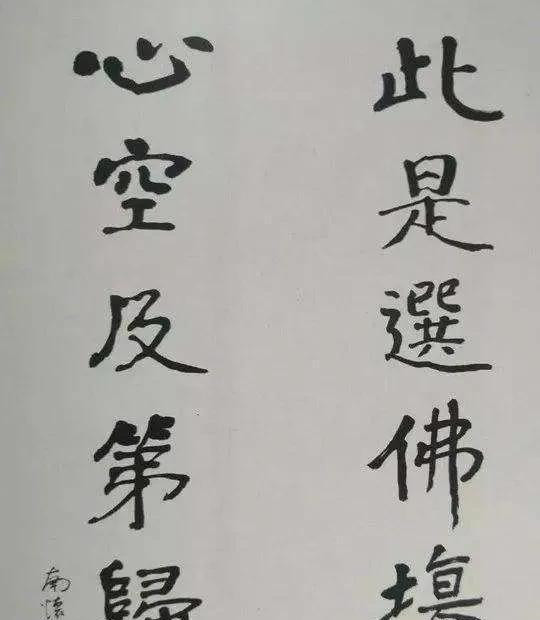 此是選佛場
心空及第歸
南懷